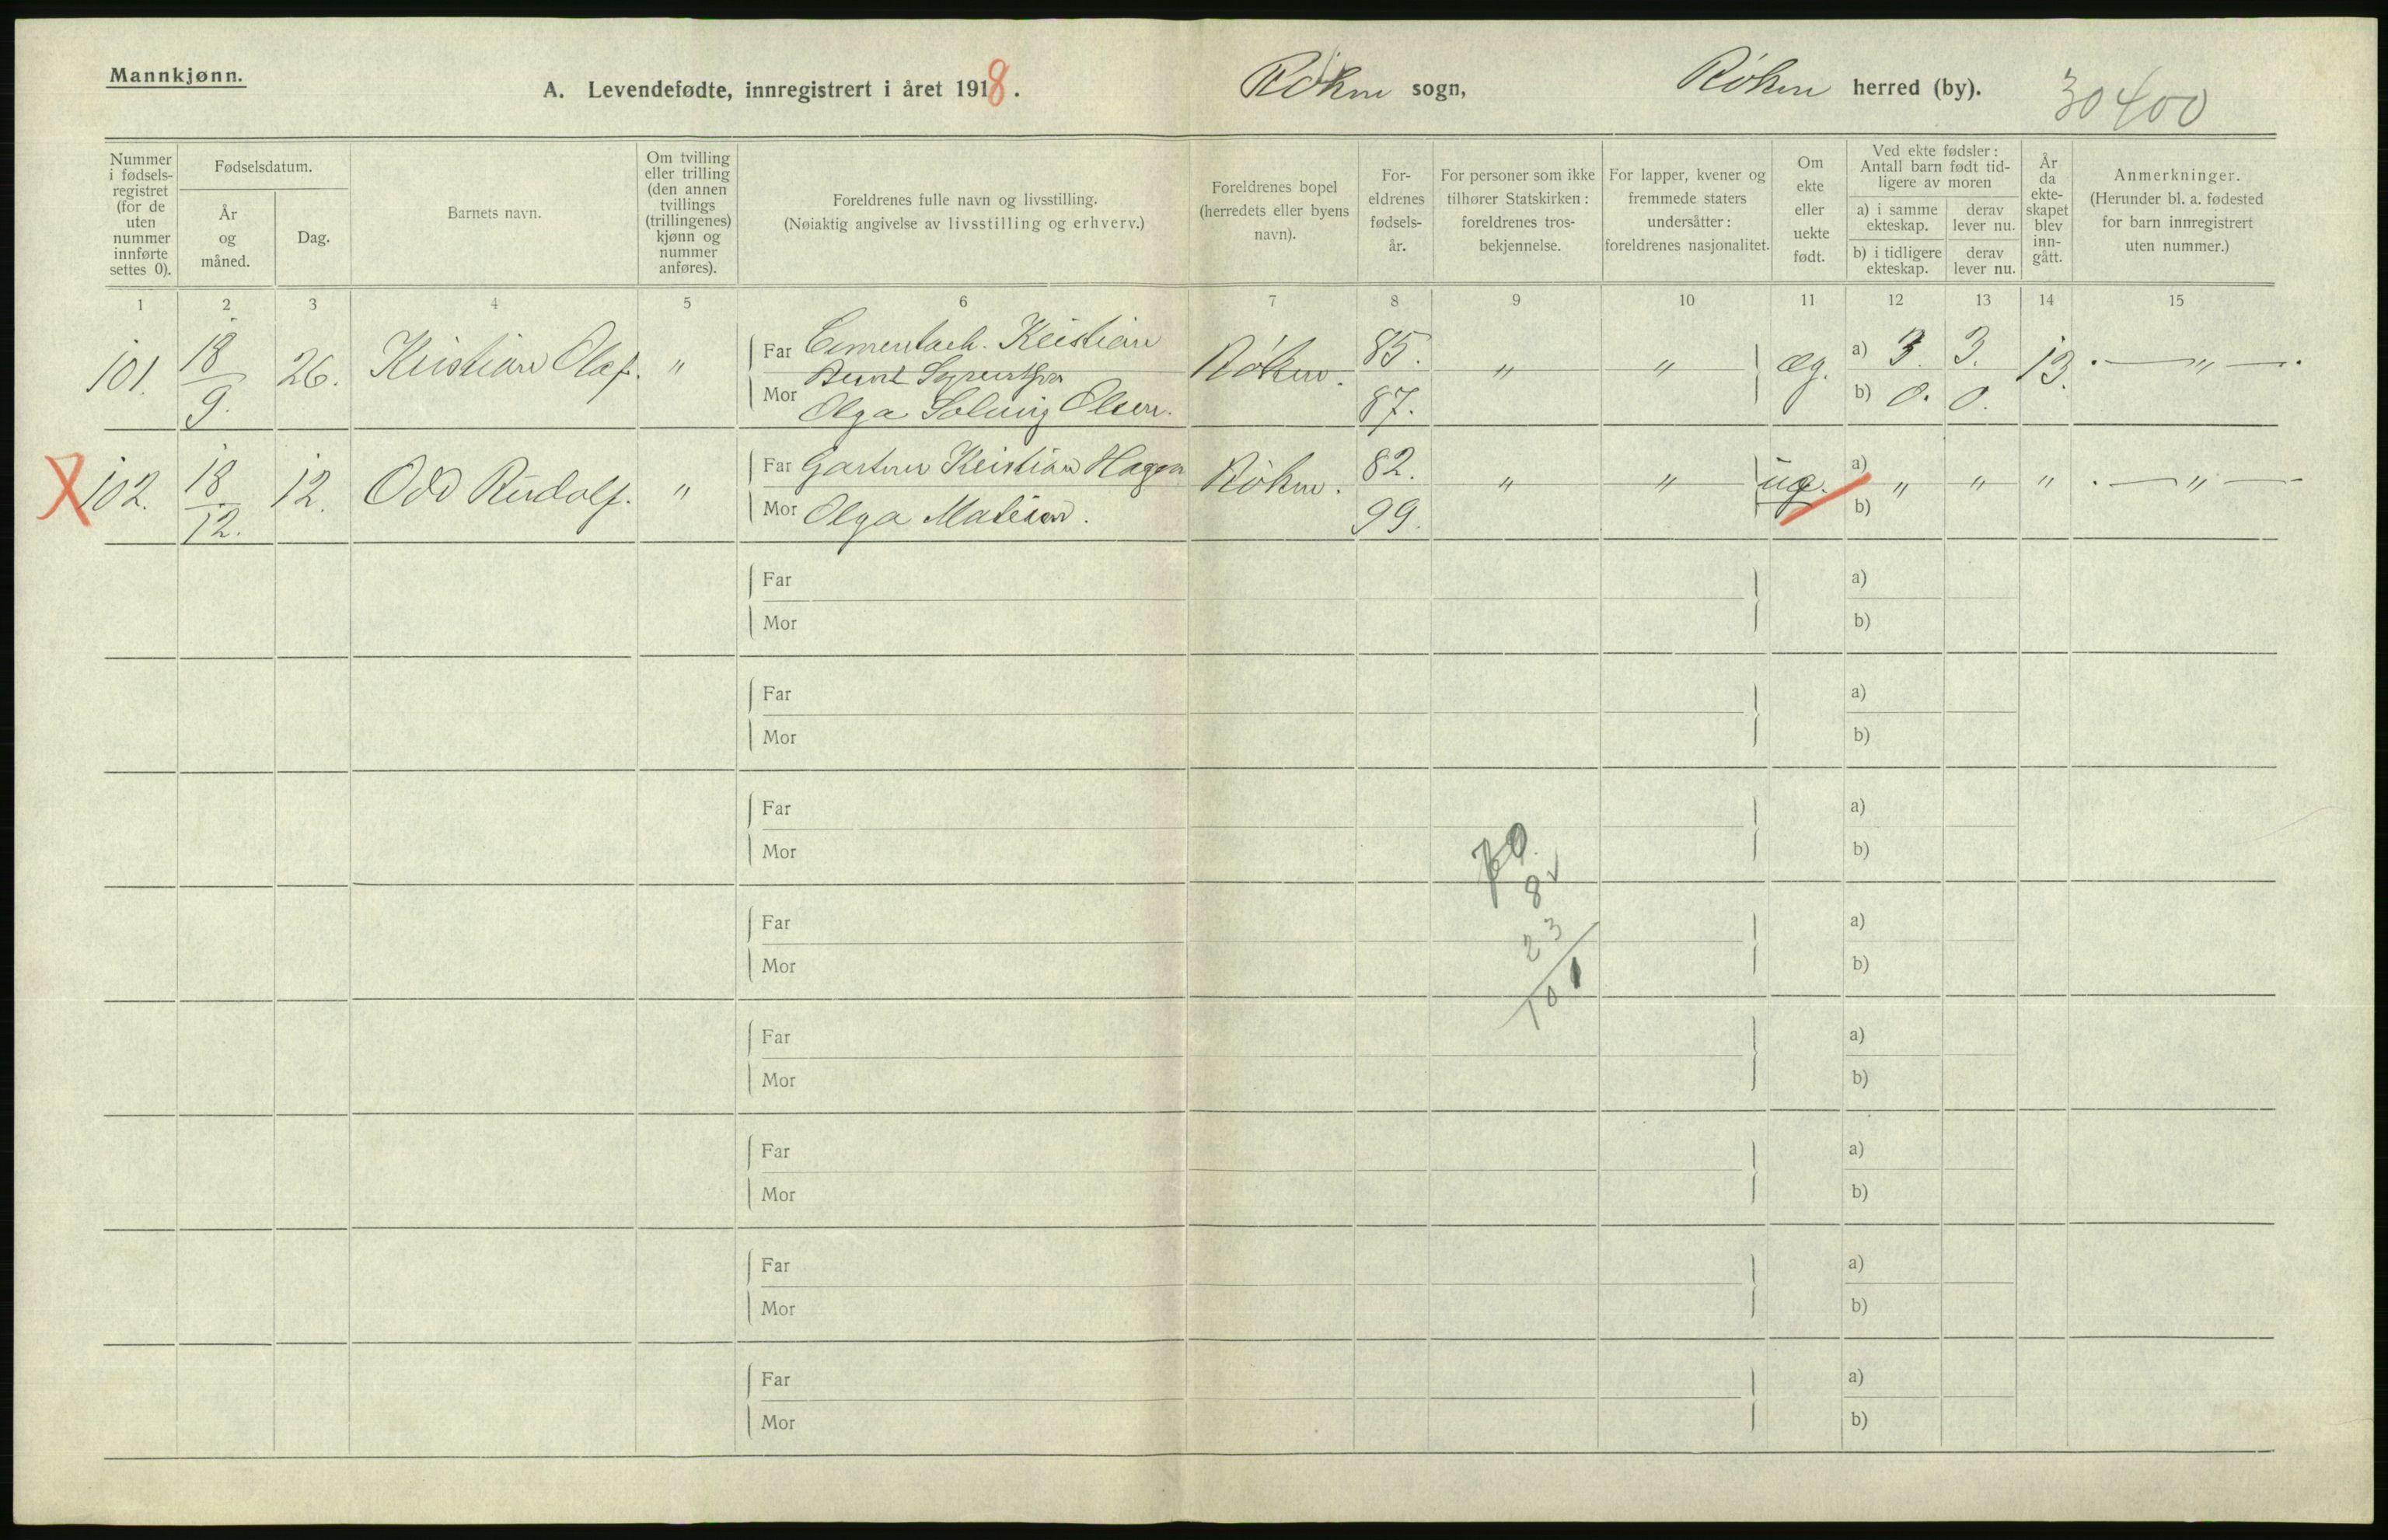 Mannkjønn.
A. Levendefødte, innregistrert i året 1918.
Røken sogn,
Røken herred (by).
30400
Nummer i fødsels-registret (for de uten nummer innførte settes 0).
Fødselsdatum.
År og måned.
Dag.
Barnets navn.
Om tvilling eller trilling (den annen tvillings (trillingenes) kjønn og nummer anføres).
Foreldrenes fulle navn og livsstilling.
(Nøiaktig angivelse av livsstilling og erhverv.)
Foreldrenes bopel (herredets eller byens navn).
For-eldrenes fødsels-år.
For personer som ikke tilhører Statskirken: foreldrenes tros-bekjennelse.
For lapper, kvener og fremmede staters undersåtter: foreldrenes nasjonalitet.
Om ekte eller uekte født.
Ved ekte fødsler: Antall barn født tid-ligere av moren
a) i samme ekteskap.
derav lever nu.
b) i tidligere ekteskap.
derav lever nu.
År da ekte-skapet blev inn-gått.
Anmerkninger.
(Herunder bl. a. fødested for barn innregistrert uten nummer.)
1 2 3 4 5 6 7 8 9 10 11 12 13 14 15
101. 18/9. 26. Kristian Olaf. " Far Kristian Røken. 85. " " æg. a) 3 3. 13. . — " — .
Mor Olga Solveig Olsen. 87. b) 0. 0.
X 102. 18/12. 12. Odd Rudolf. " Far Gartner Kristian Hagen Røken. 82. " " ug. a) " " " . — " —
Mor Olga Matisen. 99. b)
Far a)
Mor b)
Far a)
Mor b)
Far a)
Mor b)
70.
8 √
Far a)
23
Mor b)
101
Far a)
Mor b)
Far a)
Mor b)
Far a)
Mor b)
Far a)
Mor b)